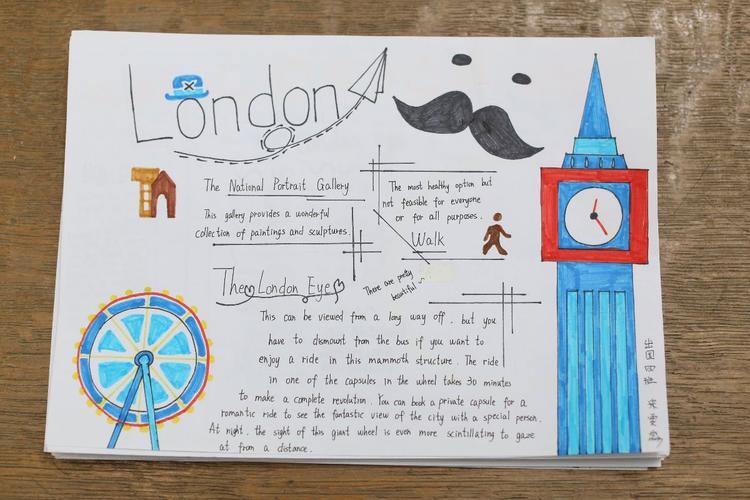 London
The National Portrait Gallery
This gallery provides a wonderful
collection of paintings and sculptures.
The most healthy option but
not feasible for everyone
or for all purposes.
Walk
The London Eye
There are pretty
beautiful ~
This can be viewed from a long way off, but you
have to dismount from the bus if you want to
enjoy a ride in this mammoth structure. The ride
in one of the capsules in the wheel takes 30 minutes
to make a complete revolution. You can book a private capsule for a
romantic ride to see the fantastic view of the city with a special person.
At night, the sight of this giant wheel is even more scintillating to gaze
at from a distance.
出国四班